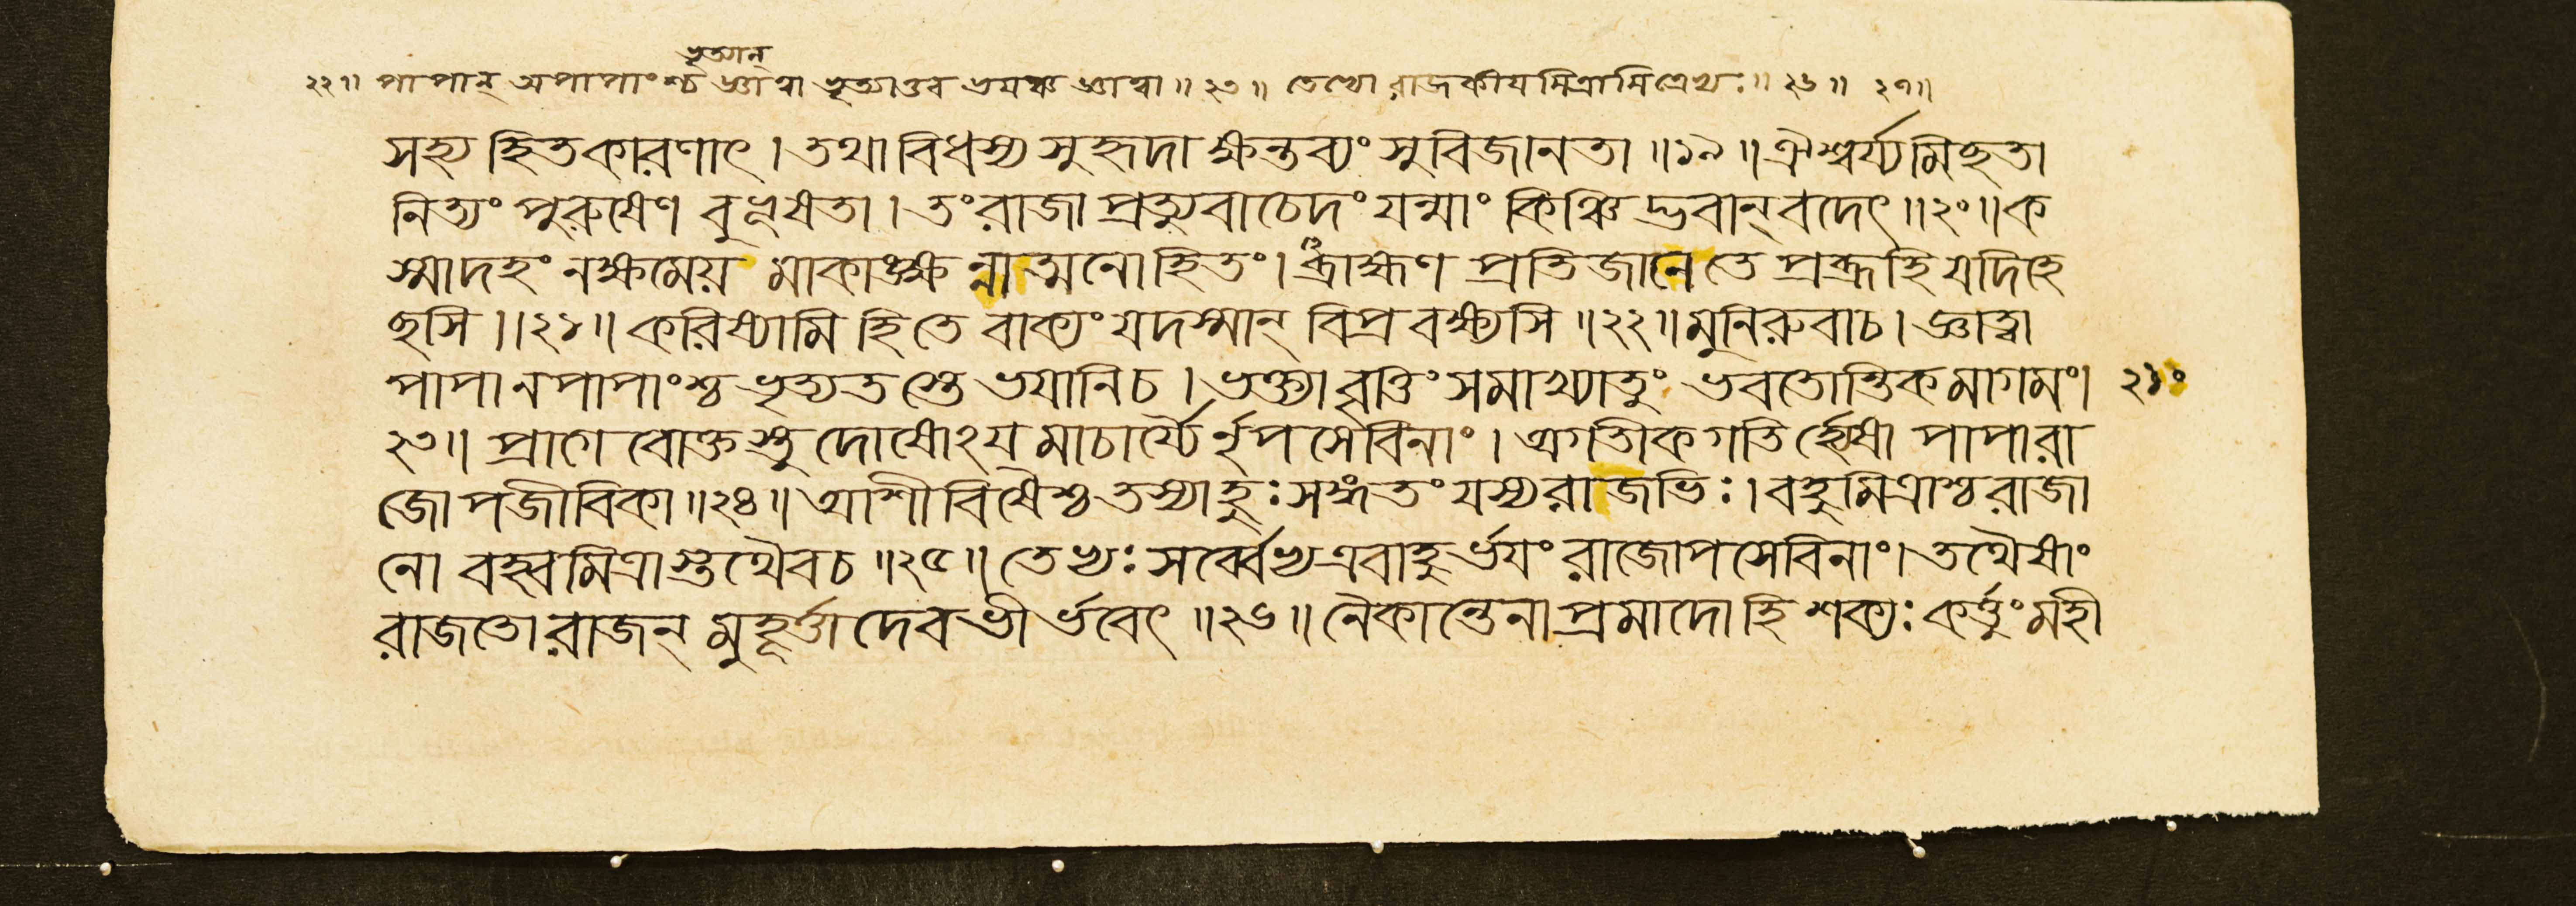 ভৃত্যান্
২২॥ পাপান্ অপাপাংশ্চ জ্ঞাত্বা ভৃত্যাত্তব ভয়ঞ্চ জ্ঞাত্বা॥ ২৩॥ তেভ্যো রাজকীযমিত্রামিত্রেভ্যঃ॥ ২৬॥ ২৭॥
সহ্য হিতকারণাৎ। তথা বিধস্য সুহৃদা ক্ষন্তব্যং সুবিজানতা॥১৯॥ঐশ্বর্য্যমিছতা
নিত্যং পুরুষেণ বুভূষতা। তং রাজা প্রত্যুবাচেদং যন্মাং কিঞ্চিদ্ভবান্ বদেৎ॥২০॥ক
স্মাদহং নক্ষমেয় মাকাঙ্ক্ষ ন্নাত্মনোহিতং। ব্রাহ্মণ প্রতিজানে তে প্রব্রূহি যদিহে
ছসি॥২১॥ করিষ্যামি হি তে বাক্যং যদস্মান্ বিপ্র বক্ষ্যসি॥২২॥মুনিরুবাচ। জ্ঞাত্বা
পাপানপাপাংশ্চ ভৃত্যতস্তে ভযানিচ। ভক্ত্যা বৃত্তিং সমাখ্যাতুং ভবতোন্তিকমাগমং। ২১॰
২৩॥ প্রাগে বোক্তস্তু দোষোঽয মাচার্য্যৈ র্নৃপ সেবিনাং। অগতীকগতি র্হ্যেষা পাপা রা
জোপজীবিকা॥২৪॥ আশীবিষৈশ্চ তস্যাহুঃ সঙ্গতং যস্য রাজভিঃ। বহুমিত্রাশ্চ রাজা
নো বহ্বমিত্রাস্তুথৈবচ॥২৫॥ তেভ্যঃ সর্ব্বেভ্য এবাহুর্ভযং রাজোপসেবিনাং। তথৈষাং
রাজতো রাজন্ মুহূর্ত্তাদেব ভী র্ভবেৎ॥২৬॥ নৈকান্তেনাপ্রমাদো হি শক্যঃ কর্ত্তুং মহী